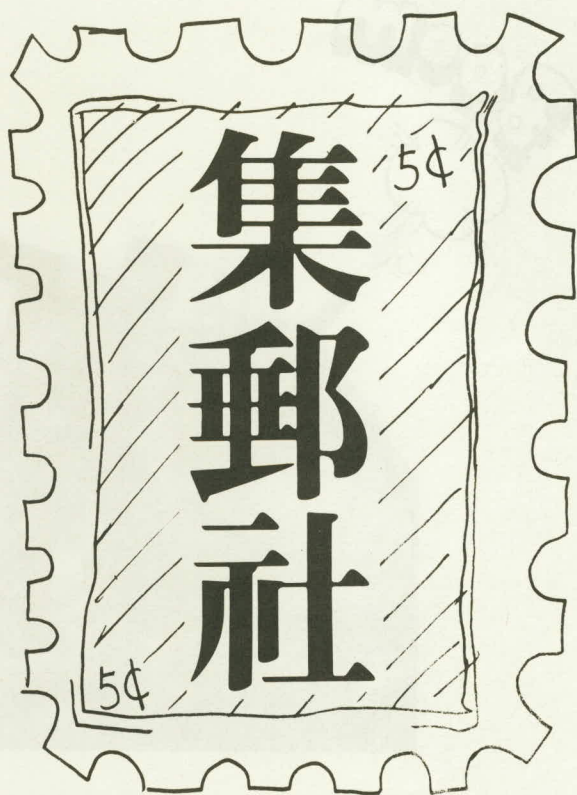 5¢
集郵社
5¢